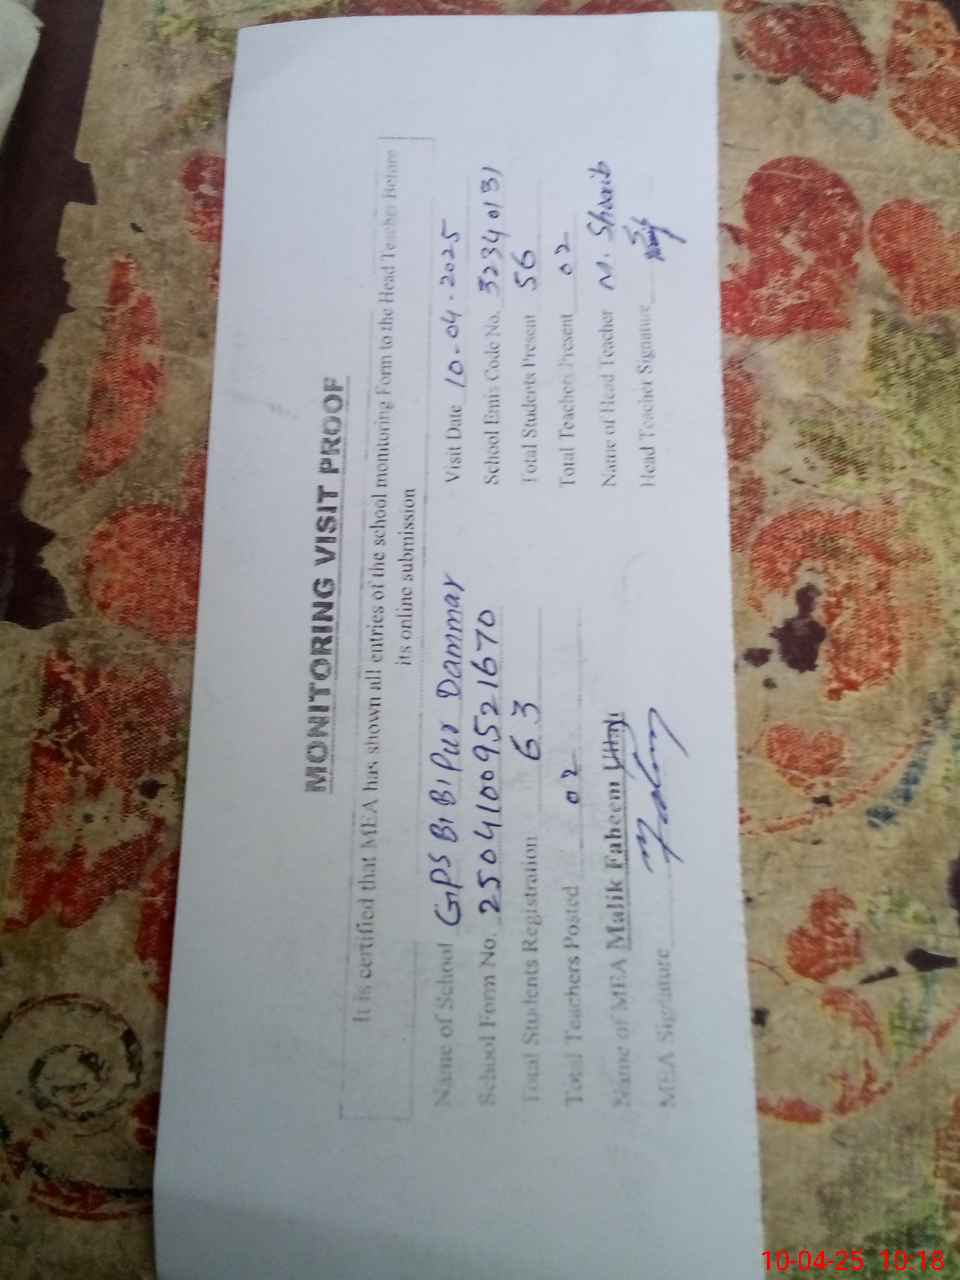 MONITORING VISIT PROOF
It is certified that MEA has shown all entries of the school monitoring Form to the Head Teacher Before
its online submission
Name of School GPS Bi Bi Pur Dammar Visit Date 10-04-2025
School Form No. 2504100952 1670 School Emis Code No. 32340131
Total Students Registration 63 Total Students Present 56
Total Teachers Posted 02 Total Teachers Present 02
Name of MEA Malik Faheem Name of Head Teacher M. Shoaib
MEA Signature Head Teacher Signature
10-04-25 10:18